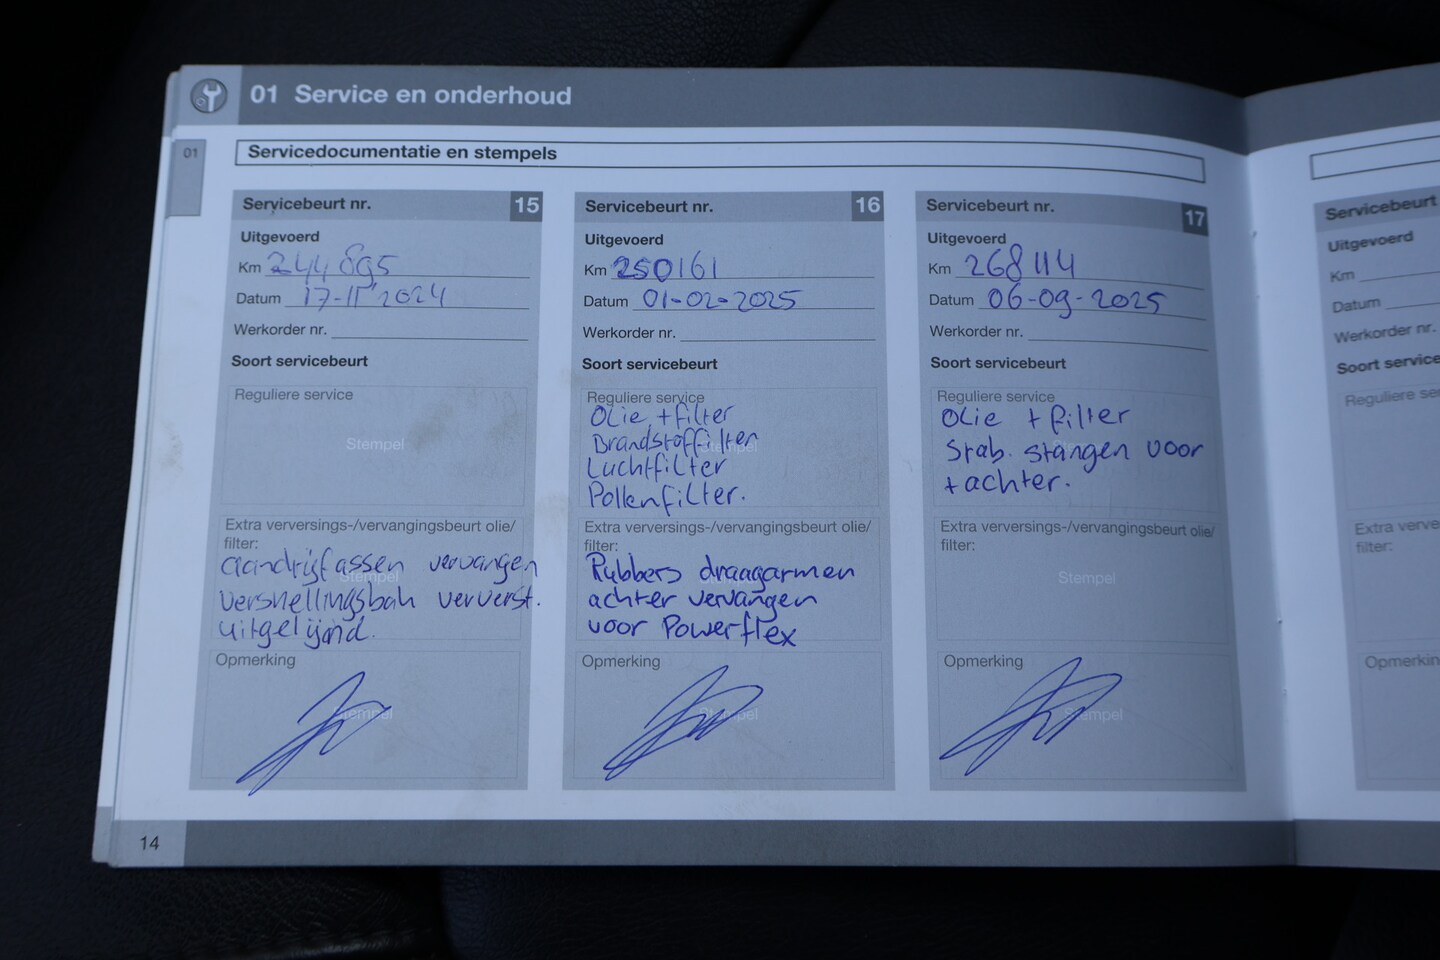 01 Service en onderhoud
01
Servicedocumentatie en stempels
Servicebeurt nr. 15
Uitgevoerd
Km 244 895
Datum 17-11-2024
Werkorder nr.
Soort servicebeurt
Reguliere service
Stempel
Extra verversings-/vervangingsbeurt olie/
filter:
Stempel
aandrijfassen vervangen
versnellingsbak ververst.
uitgelijnd.
Opmerking
Stempel
Servicebeurt nr. 16
Uitgevoerd
Km 250161
Datum 01-02-2025
Werkorder nr.
Soort servicebeurt
Reguliere service
Olie +filter
Brandstoffilter
Luchtfilter
Pollenfilter.
Extra verversings-/vervangingsbeurt olie/
filter:
Rubbers draagarmen
achter vervangen
voor Powerflex
Opmerking
Stempel
Servicebeurt nr. 17
Uitgevoerd
Km 268114
Datum 06-09-2025
Werkorder nr.
Soort servicebeurt
Reguliere service
Olie + filter
Stab. stangen voor
+achter.
Extra verversings-/vervangingsbeurt olie/
filter:
Stempel
Opmerking
Stempel
Servicebeurt
Uitgevoerd
Km
Datum
Werkorder nr.
Soort service
Reguliere ser
Extra verve
filter:
Opmerkin
14